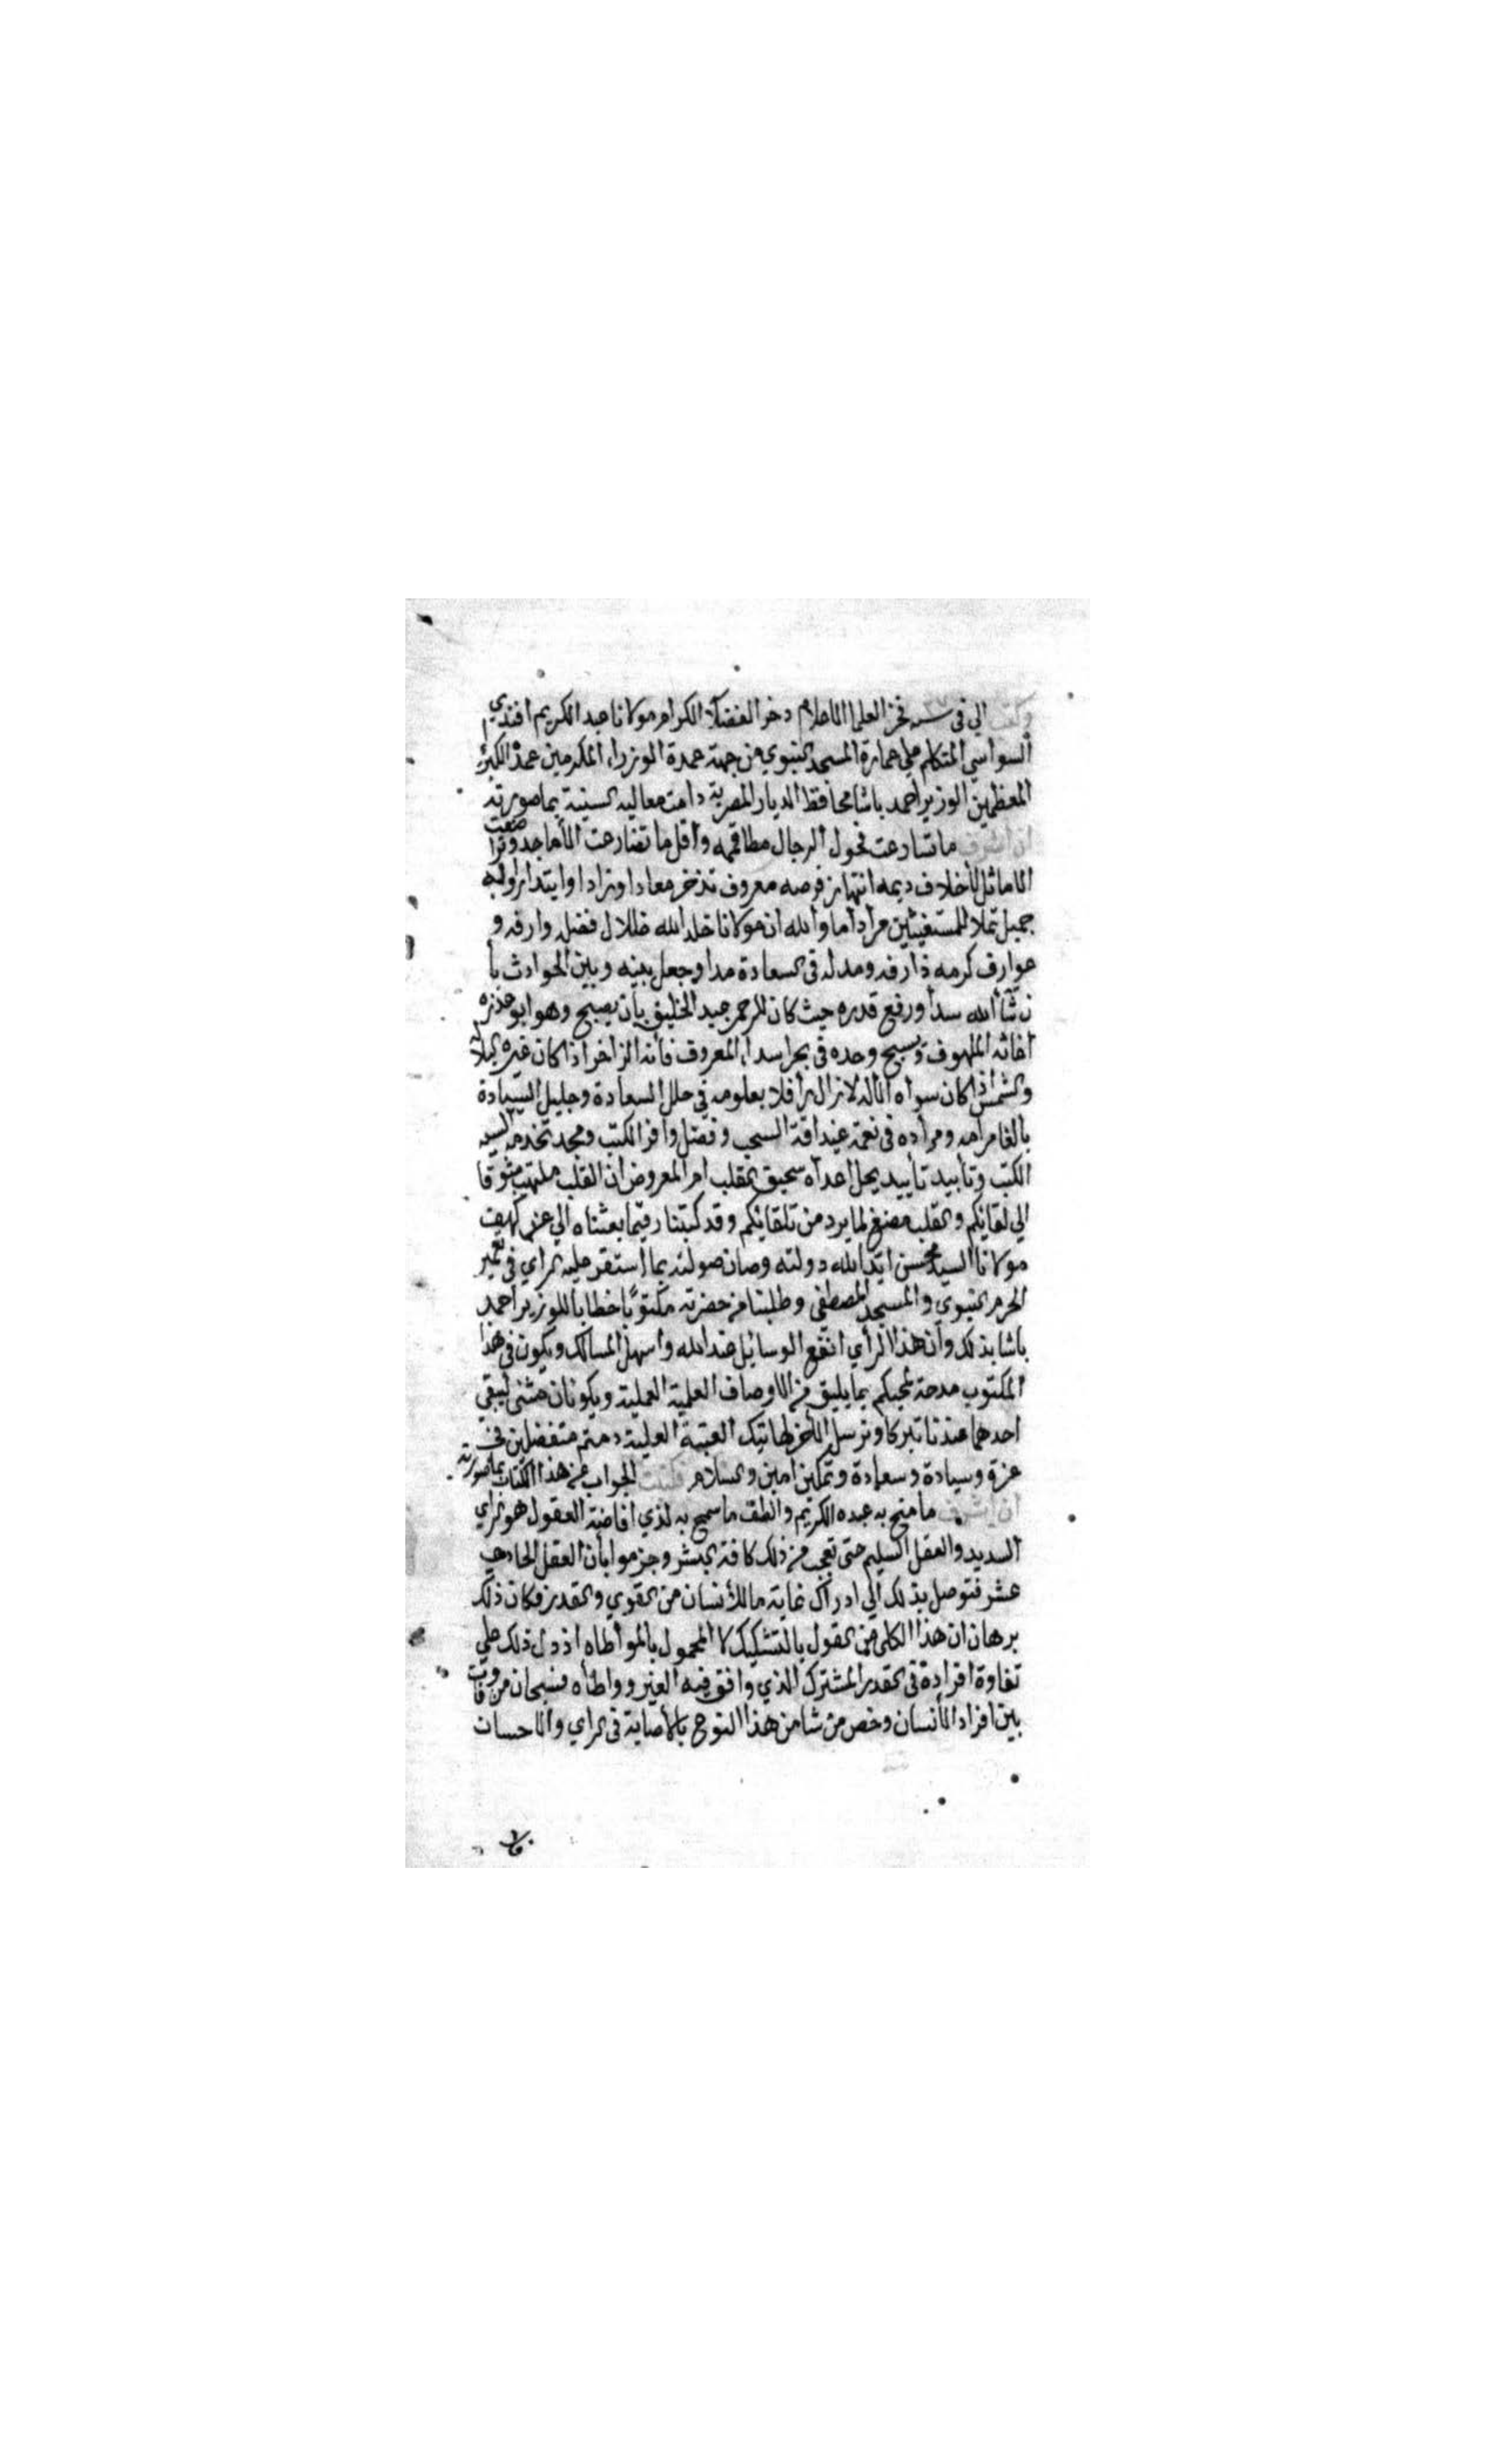 وكتب الي في سـنة فخر العلما الاعلام ذخر الفضلآ الكرام مولانا عبد الكريم افندي
السواسي المتكلم علي عمارة المسجد النبوي من جهة عمدة الوزراء المكرمين عمدة الكبرآ
المعظمين الوزير أحمد باشا محافظ الديار المصرية دامت معاليه السنية بما صورته
ان اشرف ما تسارعت فحول الرجال وأقل ما تضارعت الأماجد
الاماثل لأخلاف ديمه انتهاز فرصه معروف تذخر معادا وزادا وابتدار
جميل تملا للمستغيثين مرادا اما والله ان مولانا خلد الله ظلال فضله وارفه و
عوارف كرمه ذارفه ومد له في السعادة مدا وجعل بينه وبين الحوادث بأ
ن شآ الله سدا ورفع قدره حيث كان للرحم جيد الخليق بأن يصبح وهو ابو عذره
اغاثه الملهوف ونسيج وحده في بحر اسداء المعروف فأنه الزاخر اذا كان غيره
والشمس اذا كان سواه الاله لا زال رافلا بعلومه في حلل السعادة وجليل السيادة
بالغا مرامه ومراده في نعمة غيداقة السحب وفضل وافر الكتب ومجد تخدمه السبعه
الكتب وتأبيد تأييد يحل اعداه سحيق القلب ام المعروض ان القلب ملتهب شوقا
الي لقائكم والقلب مصغ لما يرد من تلقائكم وقد كتبنا رقيما بعثناه الي عز كهف
مولانا السيد محسن ايد الله دولته وصان صولته بما استقر عليه الراي في تعمير
الحرم النبوي والمسجد المصطفي وطلبنا من حضرته مكتوبًا خطابا للوزير احمد
باشا بذلك وان هذا الرأي انفع الوسائل عند الله واسهل المسالك ويكون في هذا
المكتوب مدحة لمحبكم بما يليق من الاوصاف العلمية العملية ويكونان مثنى ليبقي
احدهما عندنا تبركا ونرسل الأخر لهاتيك العتبة العلية دمتم متفضلين في
عزة وسيادة وسعادة وتمكين امين والسلام فكتبت الجواب عن هذا الكتاب بما صورته
ان اشرف ما منح به عبده الكريم والطف ما سمح به لذي افاضة العقول هو الراي
السديد والعقل السليم حتى تعجب من ذلك كافة البشر وجزموا بأن العقل الحادي
عشر فتوصل بذلك الي ادراك غاية ما للأنسان من القوي والقدر فكان ذلك
برهان ان هذا الكلي من المقول بالتشكيك لا المحمول بالمواطاه اذ دل ذلك علي
تفاوة افراده في القدر المشترك الذي وافق فيه الغير وواطأه فسبحان من فاوت
بين افراد الأنسان وخص من شا من هذا النوع بالأصابة في الراي والاحسان